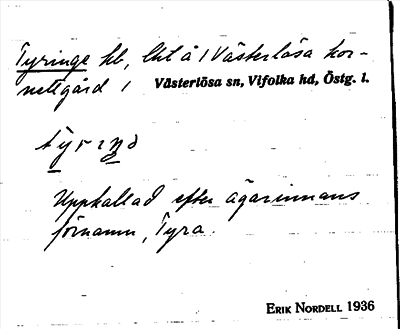 Tyringe hb, lht å 1 Västerlösa kor-
nettgård 1 Västerlösa sn, Vifolka hd, Östg. l.
Uppkallad efter ägarinnans
förnamn, Tyra.
ERIK NORDELL 1936